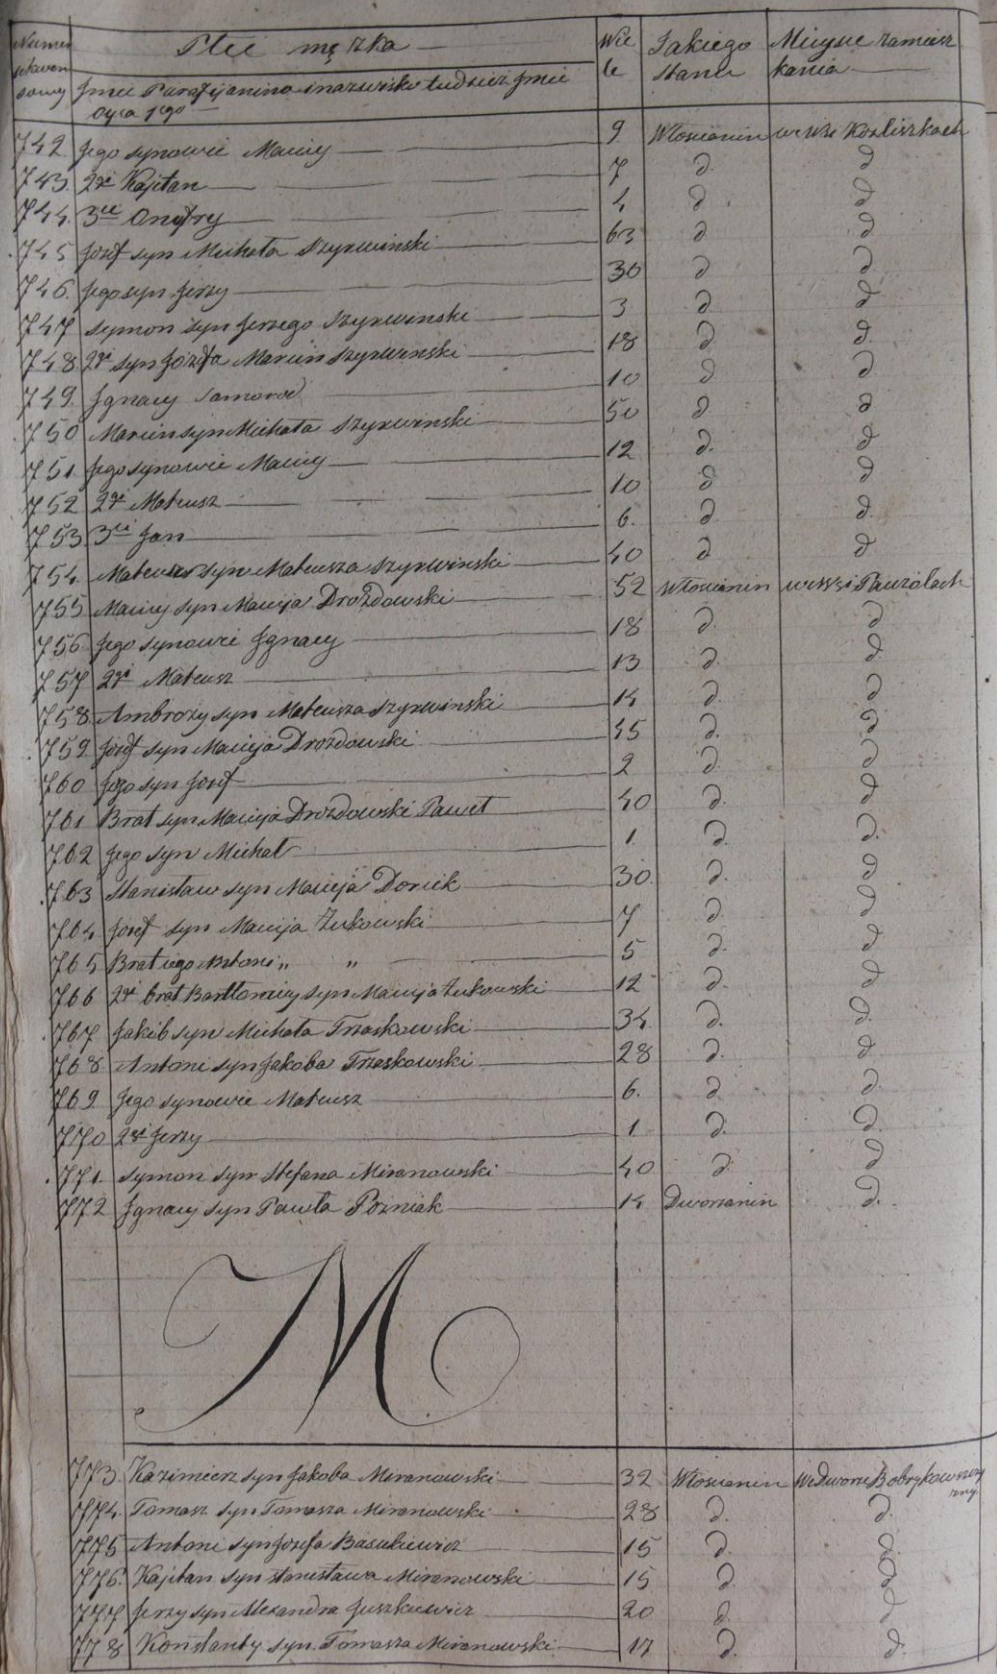 Numer sekwensowy | Płci męzka | Wie le | Jakiego stanu | Miejsce zamieszkania
Jmie Parafijanina i nazwisko tudzież Jmie Oyca Jego
742. Jego synowie Maciey 9. Włoscianin we Wsi Kozliszkach
743. 2gi Kajetan 7 d. d
744. 3ci Onofry 4 d. d
745 Jozef syn Michała Szyrwinski 63 d d
746. Jego syn Jerzy 30 d d.
747 Symon syn Jerzego Szyrwinski 3 d d
748. 2gi syn Józefa Marcin Szyrwinski 18 d. d.
749. Jgnacy Samorod 10 d d
750 Marcin syn Michała Szyrwinski 50 d d
751. Jego synowie Maciey 12 d. d
752 2gi Mateusz 10 d d
753 3ci Jan 6. d. d.
754. Mateusz syn Mateusza Szyrwinski 40 d d
755 Maciey syn Macieja Drozdowski 52 Włoscianin we wsi Pauzolach
756. Jego synowie Jgnacy 18 d. d
757 2gi Mateusz 13 d. d
758. Ambroży syn Mateusza Szyrwinski 14 d. d
759. Jozef syn Macieja Drozdowski 45 d. d
760 Jego syn Jozef 2 d. d
761 Brat syn Macieja Drozdowski Paweł 40 d. d
762 Jego syn Michał 1. d. d.
763 Stanisław syn Macieja Dowik 30. d. d
764. Jozef syn Macieja Żukowski 7 d. d
765 Brat iego Antoni „ „ 5 d. d
766 2gi brat Bartłomiey syn Macieja Żukowski 12 d. d
767. Jakób syn Michała Trzaskowski 34 d. d.
768. Antoni syn Jakoba Trzaskowski 28 d. d
769 Jego synowie Mateusz 6. d d.
770 2gi Jerzy 1 d. d.
771. Symon syn Stefana Miranowski 40 d d
772 Jgnacy syn Pawła Pozniak 14 Dworzanin d.
M
773. Kazimierz syn Jakoba Miranowski 32 Włoscianin We Dworze Bobrykowszczyzny
774. Tomasz syn Tomasza Miranowski 28 d. d.
775 Antoni syn Jozefa Basukiewicz 15 d. d.
776. Kajetan syn Stanisława Miranowski 15 d. d
777 Jerzy syn Alexandra Juszkiewicz 20 d. d
778 Konstanty syn Tomasza Miranowski 17 d. d.